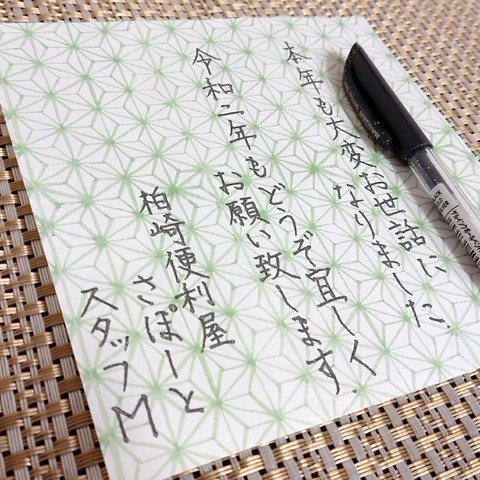 本年も大変お世話に
なりました。
令和二年もどうぞ宜しく
お願い致します。
柏崎便利屋
さぽーと
スタッフM